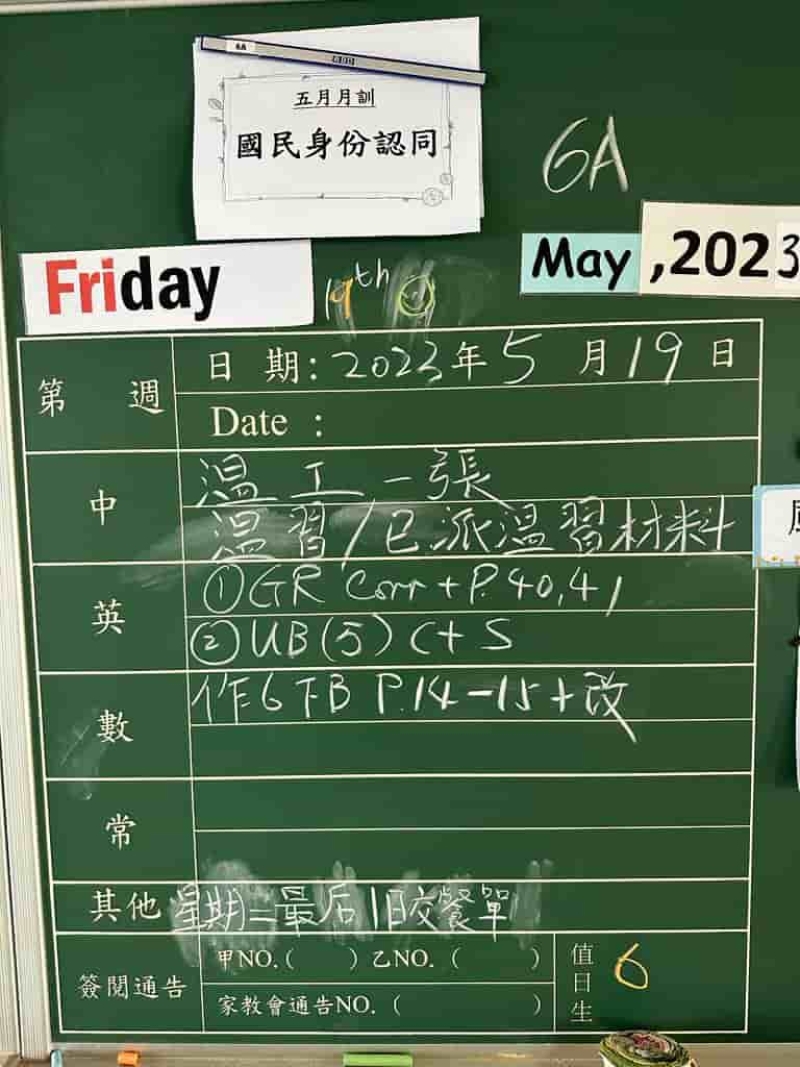 6A
五月月訓
國民身份認同
6A
Friday 19th May,2023
第 週
日 期: 2023年5月19日
Date :
中
溫工一張
溫習/已派溫習材料
英
①GR Corr + P.40,41
②UB(5) C+S
數
作6下B P.14-15+改
常
其他
星期二最后1日交餐單
簽閱通告
甲NO.( ) 乙NO. ( )
家教會通告NO. ( )
值日生
6